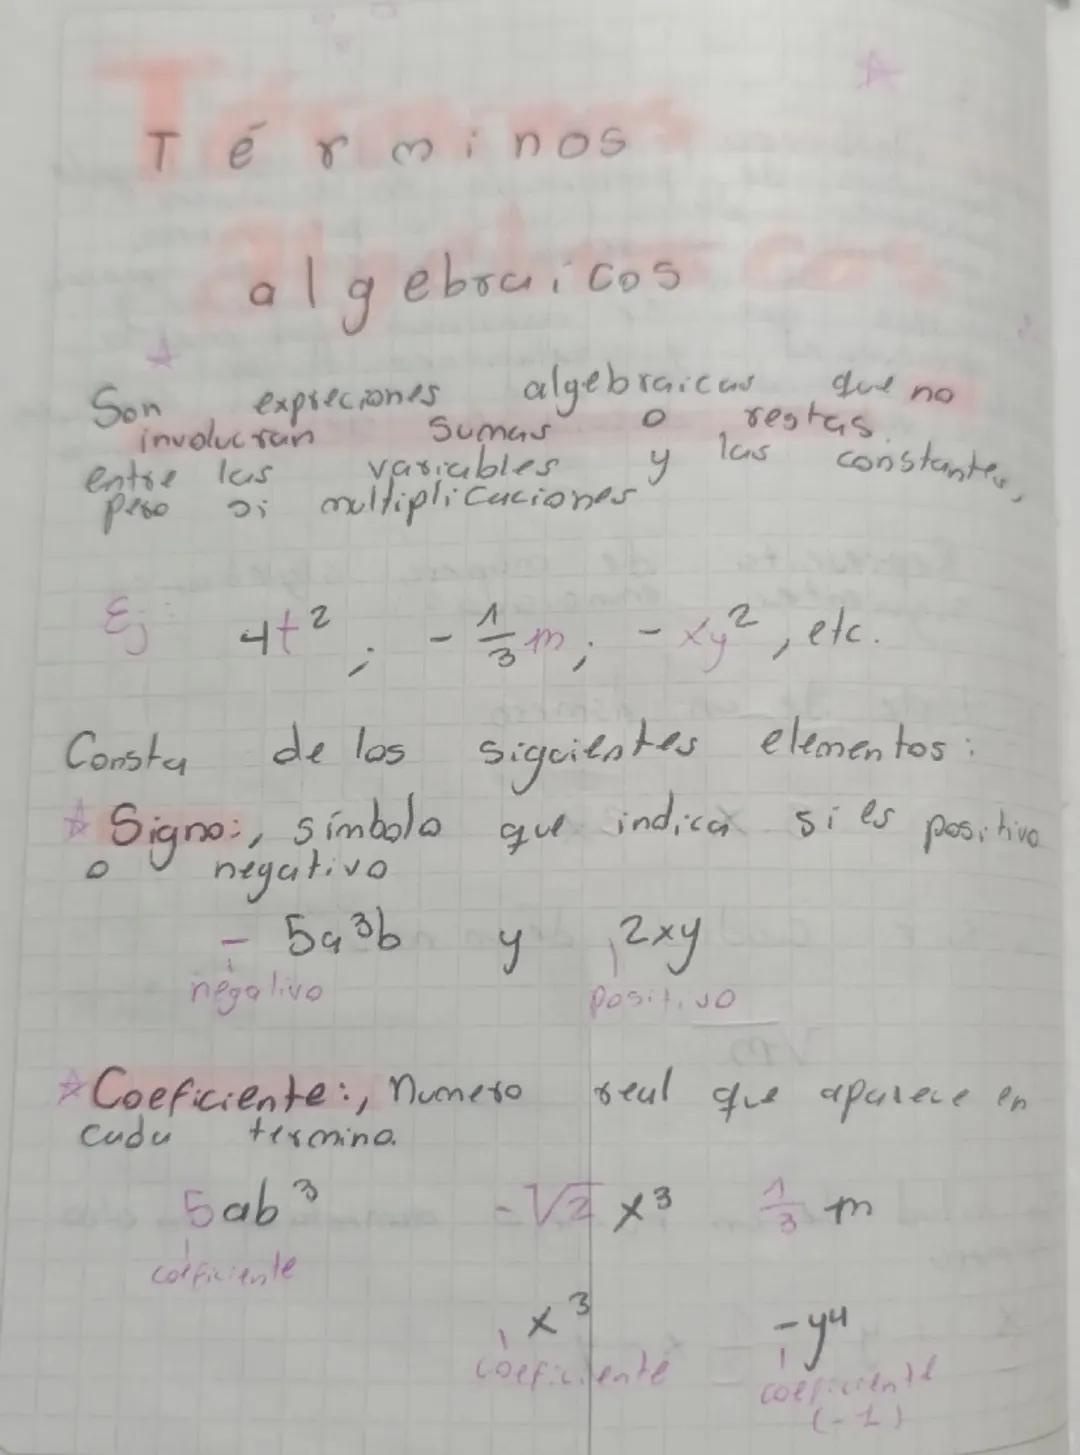 Términos
algebraicos
Son expreciones algebraicas que no
involucran sumas o restas.
entre las variables y las constantes,
pero si multiplicaciones
Ej: 4t² ; - 1/3 m ; - xy² , etc.
Consta de los siguientes elementos:
☆ Signo:, símbolo que indica si es positivo
o negativo
- 5a³b y 2xy
negativo positivo
☆ Coeficiente:, Numero real que aparece en
cada termino.
5ab³ -√2 x³ 1/3 m
coeficiente
x³ -y⁴
coeficiente coeficiente
(-1)